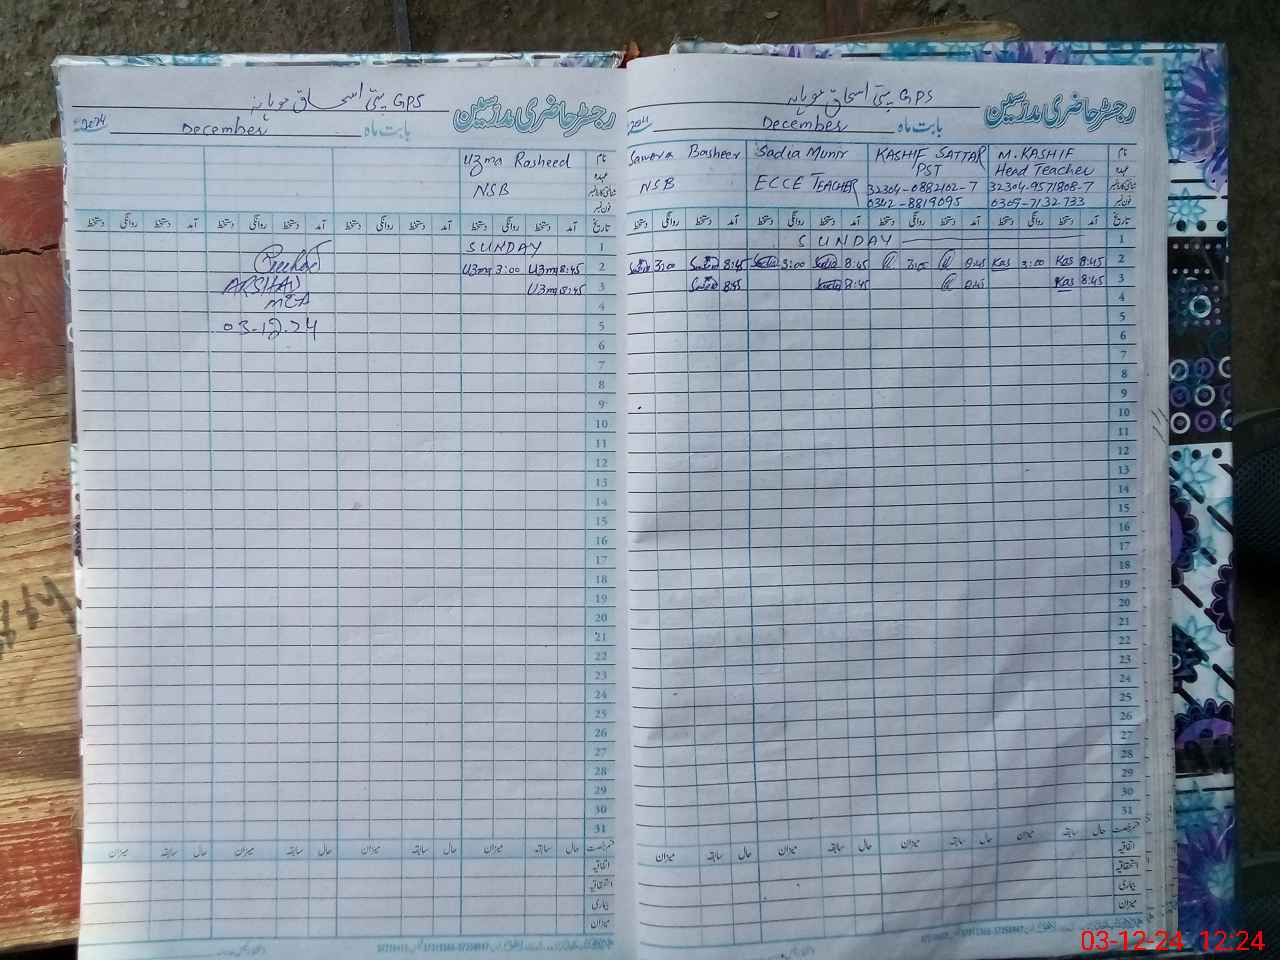 GPS
رجسٹر حاضری مدرسین
2024
December
بابت ماہ
Uzma Rasheed
نام
عہدہ
NSB
دستخط روانگی دستخط آمد دستخط روانگی دستخط آمد دستخط روانگی دستخط آمد دستخط روانگی دستخط آمد تاریخ
SUNDAY 1
Uzma 3:00 Uzma 8:45 2
ARSHAD
Uzma 8:45 3
MEA
4
03-12-24
5
6
7
8
9
10
11
12
13
14
15
16
17
18
19
20
21
22
23
24
25
26
27
28
29
30
31
میزان سابقہ حال میزان سابقہ حال میزان سابقہ حال میزان سابقہ حال
اتفاقیہ
استحقاقیہ
بیماری
میزان
GPS
رجسٹر حاضری مدرسین
December
بابت ماہ
Samera Basheer Sadia Munir KASHIF SATTAR M. KASHIF نام
PST Head Teacher عہدہ
NSB ECCE TEACHER 32304-0882102-7 32304-9571808-7
0342-8819095 0309-7132733
دستخط روانگی دستخط آمد دستخط روانگی دستخط آمد دستخط روانگی دستخط آمد دستخط روانگی دستخط آمد تاریخ
SUNDAY 1
3:00 8:45 Sadia 3:00 Sadia 8:45 3:00 8:45 Kas 3:00 Kas 8:45 2
8:45 Sadia 8:45 8:45 Kas 8:45 3
4
5
6
7
8
9
10
11
12
13
14
15
16
17
18
19
20
21
22
23
24
25
26
27
28
29
30
31
میزان سابقہ حال میزان سابقہ حال میزان سابقہ حال میزان سابقہ حال
اتفاقیہ
استحقاقیہ
بیماری
میزان
03-12-24 12:24